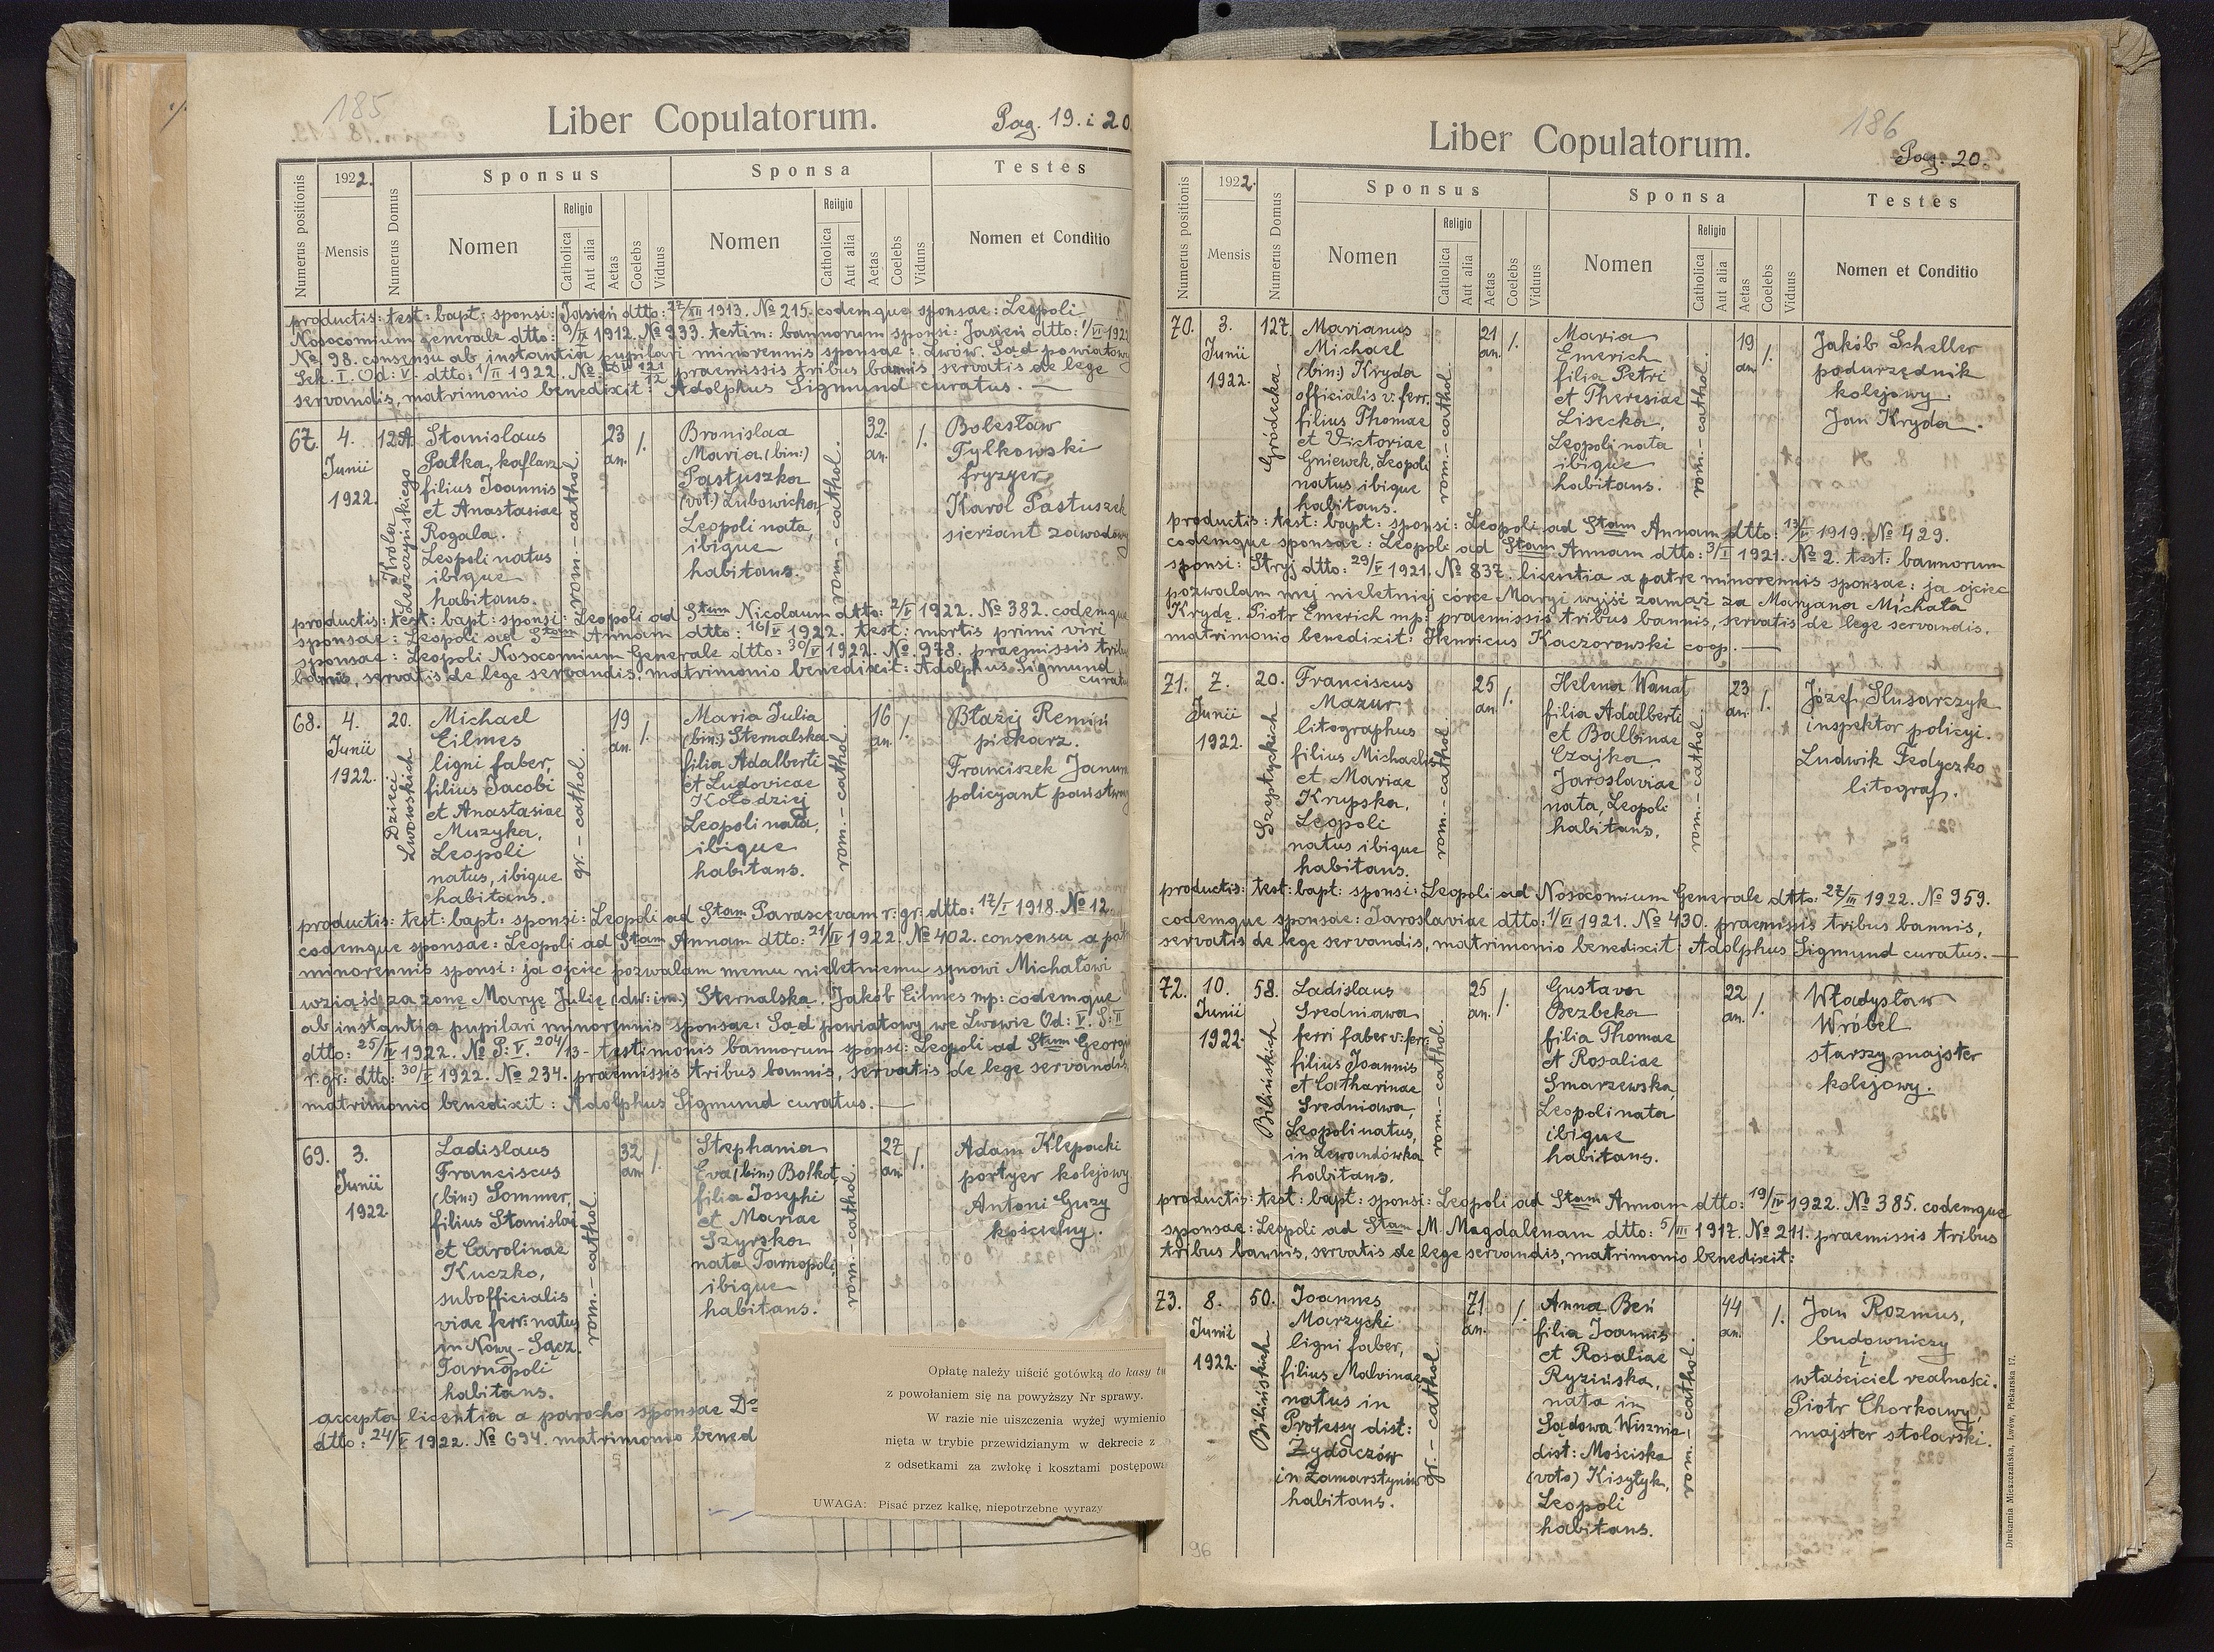 185
Liber Copulatorum.
Pag. 19. i 20.
Numerus positionis
1922.
Mensis
Numerus Domus
Sponsus
Nomen
Religio
Catholica
Aut alia
Aetas
Coelebs
Viduus
Sponsa
Nomen
Religio
Catholica
Aut alia
Aetas
Coelebs
Viduus
Testes
Nomen et Conditio
productis: test: bapt: sponsi: Jasień dtto: 27/XII 1913. № 215. codemque sponsae: Leopoli
Nosocomium generale dtto: 9/IX 1912. № 933. testim: bannorum sponsi: Jasień dtto: 1/VI 1922
№ 98. consensu ab instantia pupilari minorennis sponsae: Lwów. Sąd powiatowy
Sek. I. Od: V. dtto: 1/II 1922. № 121/12 praemissis tribus bannis, servatis de lege
servandis, matrimonio benedixit: Adolphus Sigmund curatus. —
67.
4.
Junii
1922.
12A.
Króla
Leszczyńskiego
Stanislaus
Patka, kaflarz
filius Joannis
et Anastasiae
Rogala.
Leopoli natus
ibique
habitans.
rom.-cathol.
23
an.
/.
Bronislaa
Maria (bin:)
Pastuszka
(vot:) Lubowicka
Leopoli nata,
ibique
habitans.
rom.-cathol.
32.
an.
/.
Bolesław
Tylkowski
fryzyer
Karol Pastuszek
sierżant zawodow
productis: test: bapt: sponsi: Leopoli ad Stum Nicolaum dtto: 2/V 1922. № 382. codemque
sponsae: Leopoli ad Stam Annam dtto: 16/V 1922. test: mortis primi viri
sponsae: Leopoli Nosocomium Generale dtto: 30/V 1922. № 978. praemissis tribu
bannis, servatis de lege servandis, matrimonio benedixit: Adolphus Sigmund
curatu
68.
4.
Junii
1922.
20.
Dzieci
Lwowskich
Michael
Eilmes
ligni faber,
filius Jacobi
et Anastasiae
Muzyka,
Leopoli
natus, ibique
habitans.
gr.-cathol.
19
an.
/.
Maria Julia
(bin:) Sternalska
filia Adalberti
et Ludovicae
Kołodziej
Leopoli nata,
ibique
habitans.
rom.-cathol.
16
an.
/.
Błażej Remiń
piekarz.
Franciszek Janu
policyant państwow
productis: test: bapt: sponsi: Leopoli ad Stam Parascevam r: gr: dtto: 17/I 1918. № 12.
codemque sponsae: Leopoli ad Stam Annam dtto: 21/IV 1922. № 402. consensu a pat
minorennis sponsi: ja ojciec pozwalam memu nieletniemu synowi Michałowi
wziąść za żonę Maryę Julię (dw: im:) Sternalska. Jakób Eilmes mp: codemque
ab instantia pupilari minorennis sponsae: Sąd powiatowy we Lwowie Od: V. S: II
dtto: 25/IV 1922. № P: V. 204/13 - testimonis bannorum sponsi: Leopoli ad Stum Georgi
r. gr: dtto: 30/V 1922. № 234. praemissis tribus bannis, servatis de lege servandis
matrimonio benedixit: Adolphus Sigmund curatus. —
69.
3.
Junii
1922.
Ladislaus
Franciscus
(bin:) Sommer,
filius Stanislai
et Carolinae
Kuczko,
subofficialis
viae ferr: natus
in Nowy-Sącz.
Tarnopoli
habitans.
rom.-cathol.
32
an.
/.
Stephania
Eva (bin:) Bolkot,
filia Josephi
et Mariae
Szyrska
nata Tarnopoli,
ibique
habitans.
rom.-cathol.
27
an.
/.
Adam Klepacki
portyer kolejowy
Antoni Guzy
kościelny.
accepta licentia a parocho sponsae
dtto: 24/V 1922. № 694. matrimonio bened
Opłatę należy uiścić gotówką do kasy tu
z powołaniem się na powyższy Nr sprawy.
W razie nie uiszczenia wyżej wymienio
nięta w trybie przewidzianym w dekrecie z
z odsetkami za zwłokę i kosztami postępowa
UWAGA: Pisać przez kalkę, niepotrzebne wyrazy
186
Liber Copulatorum.
Pag. 20.
Numerus positionis
1922.
Mensis
Numerus Domus
Sponsus
Nomen
Religio
Catholica
Aut alia
Aetas
Coelebs
Viduus
Sponsa
Nomen
Religio
Catholica
Aut alia
Aetas
Coelebs
Viduus
Testes
Nomen et Conditio
70.
3.
Junii
1922.
127.
Gródecka
Marianus
Michael
(bin:) Kryda
officialis v: ferr.
filius Thomae
et Victoriae
Gniewek, Leopoli
natus ibique
habitans.
rom.-cathol.
21
an.
/.
Maria
Emerich
filia Petri
et Theresiae
Lisecka,
Leopoli nata
ibique
habitans.
rom.-cathol.
19
an
/.
Jakób Scheller
podurzędnik
kolejowy.
Jan Kryda.
productis: test: bapt: sponsi: Leopoli ad Stam Annam dtto: 13/V 1919. № 429.
codemque sponsae: Leopoli ad Stam Annam dtto: 3/I 1921. № 2. test: bannorum
sponsi: Stryj dtto: 29/V 1921. № 837. licentia a patre minorennis sponsae: ja ojciec
pozwalam mej nieletniej córce Maryi wyjść zamąż za Maryana Michała
Krydę. Piotr Emerich mp: praemissis tribus bannis, servatis de lege servandis.
matrimonio benedixit: Henricus Kaczorowski coop. —
71.
7.
Junii
1922.
20.
Szeptyckich
Franciscus
Mazur
litographus
filius Michaelis
et Mariae
Krupska.
Leopoli
natus ibique
habitans.
rom.-cathol.
25
an.
/.
Helena Wanat
filia Adalberti
et Balbinae
Czajka
Jaroslaviae
nata, Leopoli
habitans.
rom.-cathol.
23
an.
/.
Józef Slusarczyk
inspektor policyi.
Ludwik Fedyczko
litograf.
productis: test: bapt: sponsi: Leopoli ad Nosocomium Generale dtto: 27/III 1922. № 959.
codemque sponsae: Jaroslaviae dtto: 1/VI 1921. № 430. praemissis tribus bannis,
servatis de lege servandis, matrimonio benedixit: Adolphus Sigmund curatus. —
72.
10.
Junii
1922.
58.
Bilińskich
Ladislaus
Sredniawa
ferri faber v: ferr.
filius Joannis
et Catharinae
Sredniawa,
Leopoli natus,
in Lewandówka
habitans.
rom.-cathol.
25
an.
/.
Gustava
Bezbeka
filia Thomae
et Rosaliae
Smarzewska,
Leopoli nata
ibique
habitans.
22
an.
/.
Władysław
Wróbel
starszy majster
kolejowy.
productis: test: bapt: sponsi: Leopoli ad Stam Annam dtto: 19/IV 1922. № 385. codemque
sponsae: Leopoli ad Stam M. Magdalenam dtto: 5/III 1917. № 211. praemissis tribus
tribus bannis, servatis de lege servandis, matrimonio benedixit:
73.
8.
Junii
1922.
50.
Bilińskich
Joannes
Marzycki
ligni faber,
filius Malvinae
natus in
Protessy dist:
Żydaczów
in Zamarstynów
habitans.
gr.-cathol.
71
an.
/.
Anna Beń
filia Joannis
et Rosaliae
Ryzińska,
nata in
Sądowa Wisznia,
dist: Mościska
(voto) Kisyłyk,
Leopoli
habitans.
rom.-cathol.
44
an.
/.
Jan Rozmus,
budowniczy
i
właściciel realności.
Piotr Chorkawy,
majster stolarski.
96
Drukarnia Mieszczańska, Lwów, Piekarska 17.